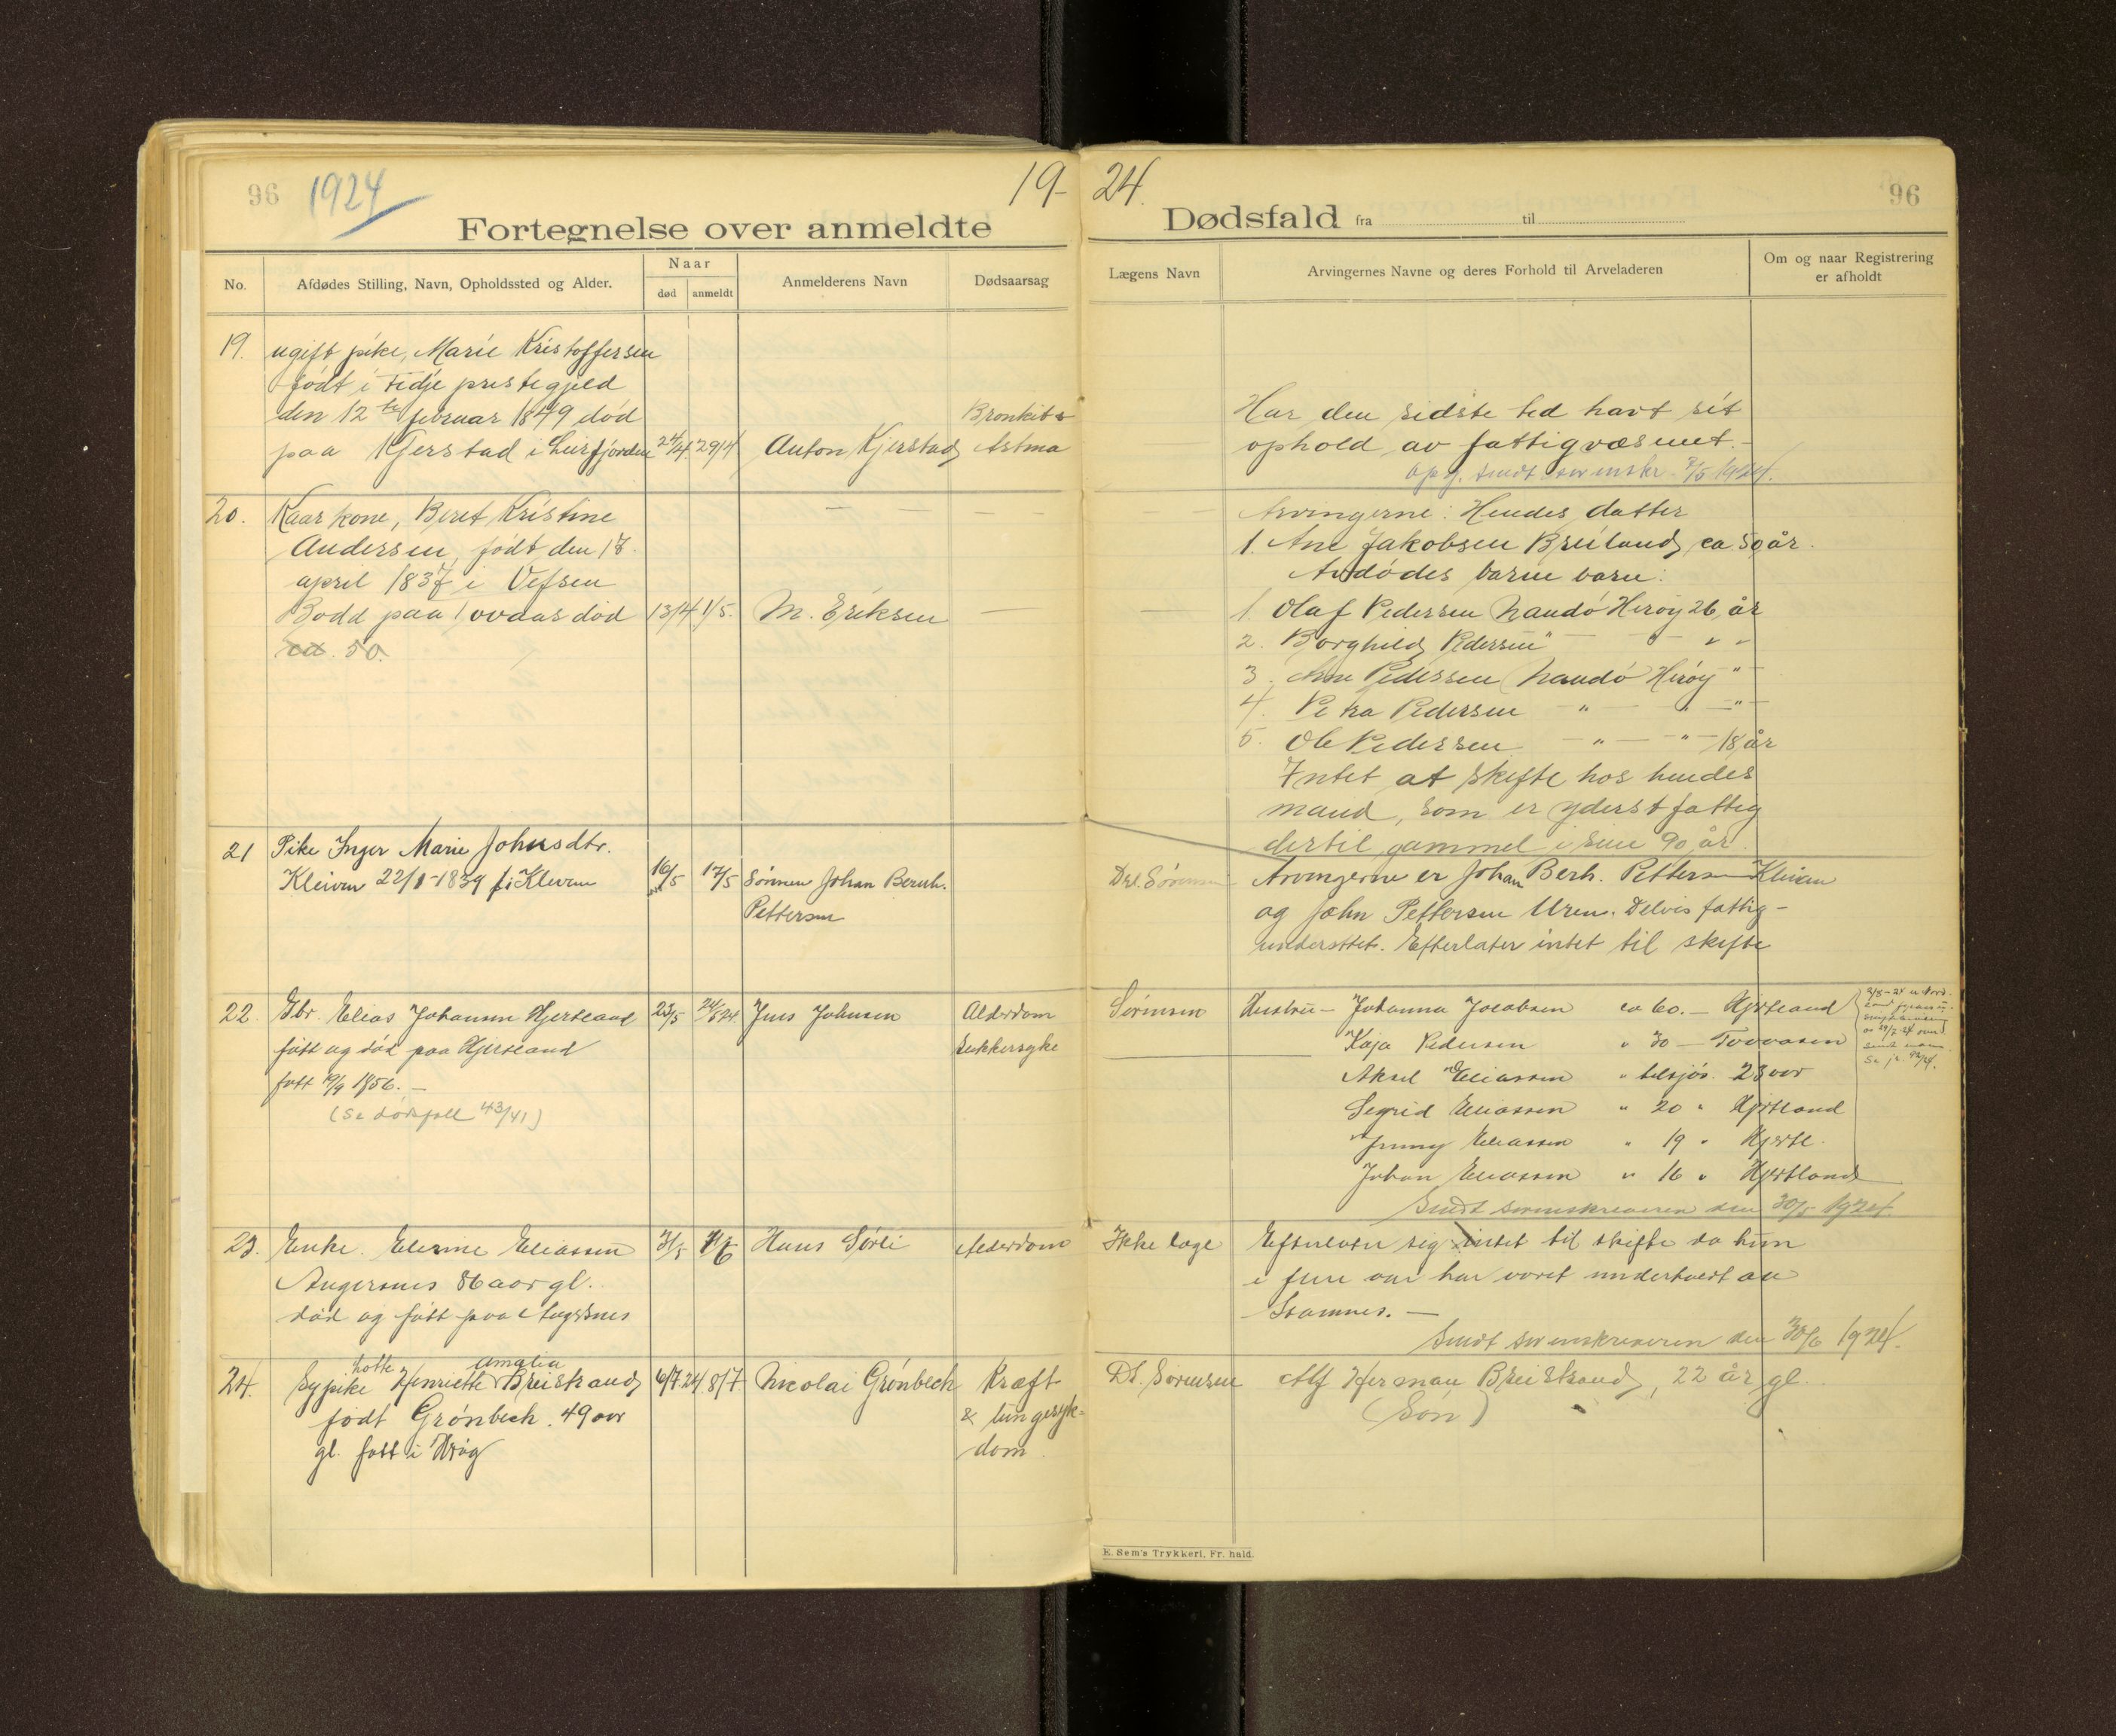 96 1924
19- 24.
96
Fortegnelse over anmeldte Dødsfald fra til
No.
Afdødes Stilling, Navn, Opholdssted og Alder.
Naar
død anmeldt
Anmelderens Navn
Dødsaarsag
Lægens Navn
Arvingernes Navne og deres Forhold til Arveladeren
Om og naar Registrering
er afholdt
19. ugift pike, Marie Kristoffersen
født i prestegjeld
den 12te februar 1849 død
paa Kjerstad i Leirfjorden 24/4. 29/4 Anton Kjerstad
Bronkit &
Astma
Har den sidste tid havt sit
ophold av fattigvæsenet.-
opg. sendt sorenskr. 7/5 1924.
20. Kaarkone, Beret Kristine
Andersen, født den 18.
april 1837 i Vefsen
Bodd paa død 13/4 1/5. M. Eriksen
ca. 50.
Arvingerne: Hendes datter
1. Ane Jakobsen Breiland, ca 50 år.
Avdødes barne barn:
1. Olaf Pedersen Nandó Herøy 26 år
2. Borghild Pedersen " — " "
3. Ane Pedersen Nandó Herøy "
4. Petra Pedersen " — " — "
5. Ole Pedersen — " — " — 18 år
Intet at skifte hos hendes
mand, som er yderst fattig
dertil gammel i sine 90 år.
21 Pike Inger Marie Johnsdtr.
Kleiven 22/1-1839 f i Kleiven 16/5 17/5 Sønnen Johan Bernh.
Pettersen
Arvingerne er Johan Berh. Pettersen Kleiven
og John Pettersen Uren. Delvis fattig-
understtet. Efterlater intet til skifte
22. Gbr. Elias Johansen Hjertland 23/5 24/5 24. Jens Johnsen
født og død paa Hjertland
født 19/9 1856. —
(Se dødsfall 43/41)
Alderdom
Sukkersyke
Sørensen
Hustru - Johanna Jacobsen ca 60. — Hjertland
Kaja Pedersen " 30 — Tovaasen
Aksel Eliassen " tilsjøs. 23 aar
Segrid Eliassen " 20 " Hjertland
Jenny Eliassen " 19 " Hjertl.
Johan Eliassen " 16 " Hjertland
Sendt sorenskriveren den 30/5 1924.
23. Enke Elerine Eliassen 31/5 1/6 Hans Sørli Alderdom Ikke læge
Angersnes 86 aar gl.
død og født paa Angersnes
Efterlater sig intet til skifte da hun
i flere aar har været underholdt av
Stamnes. —
Sendt sorenskriveren den 30/6 1924.
24. Sypike Hotte Henriette Amalia Breistrand 6/7.24 8/7 Nicolai Grønbech
født Grønbech. 49 aar
gl. født i Herøy
Kræft
& lungesyk-
dom.
Dr. Sørensen Alf Herman Breistrand, 22 år gl.
(Søn)
E. Sem's Trykkeri, Fr. hald.